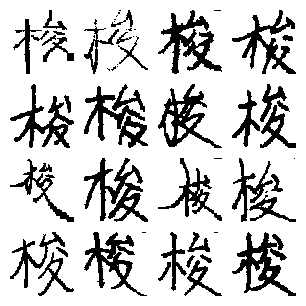 梭梭梭梭
梭梭梭梭
梭梭梭梭
梭梭梭梭